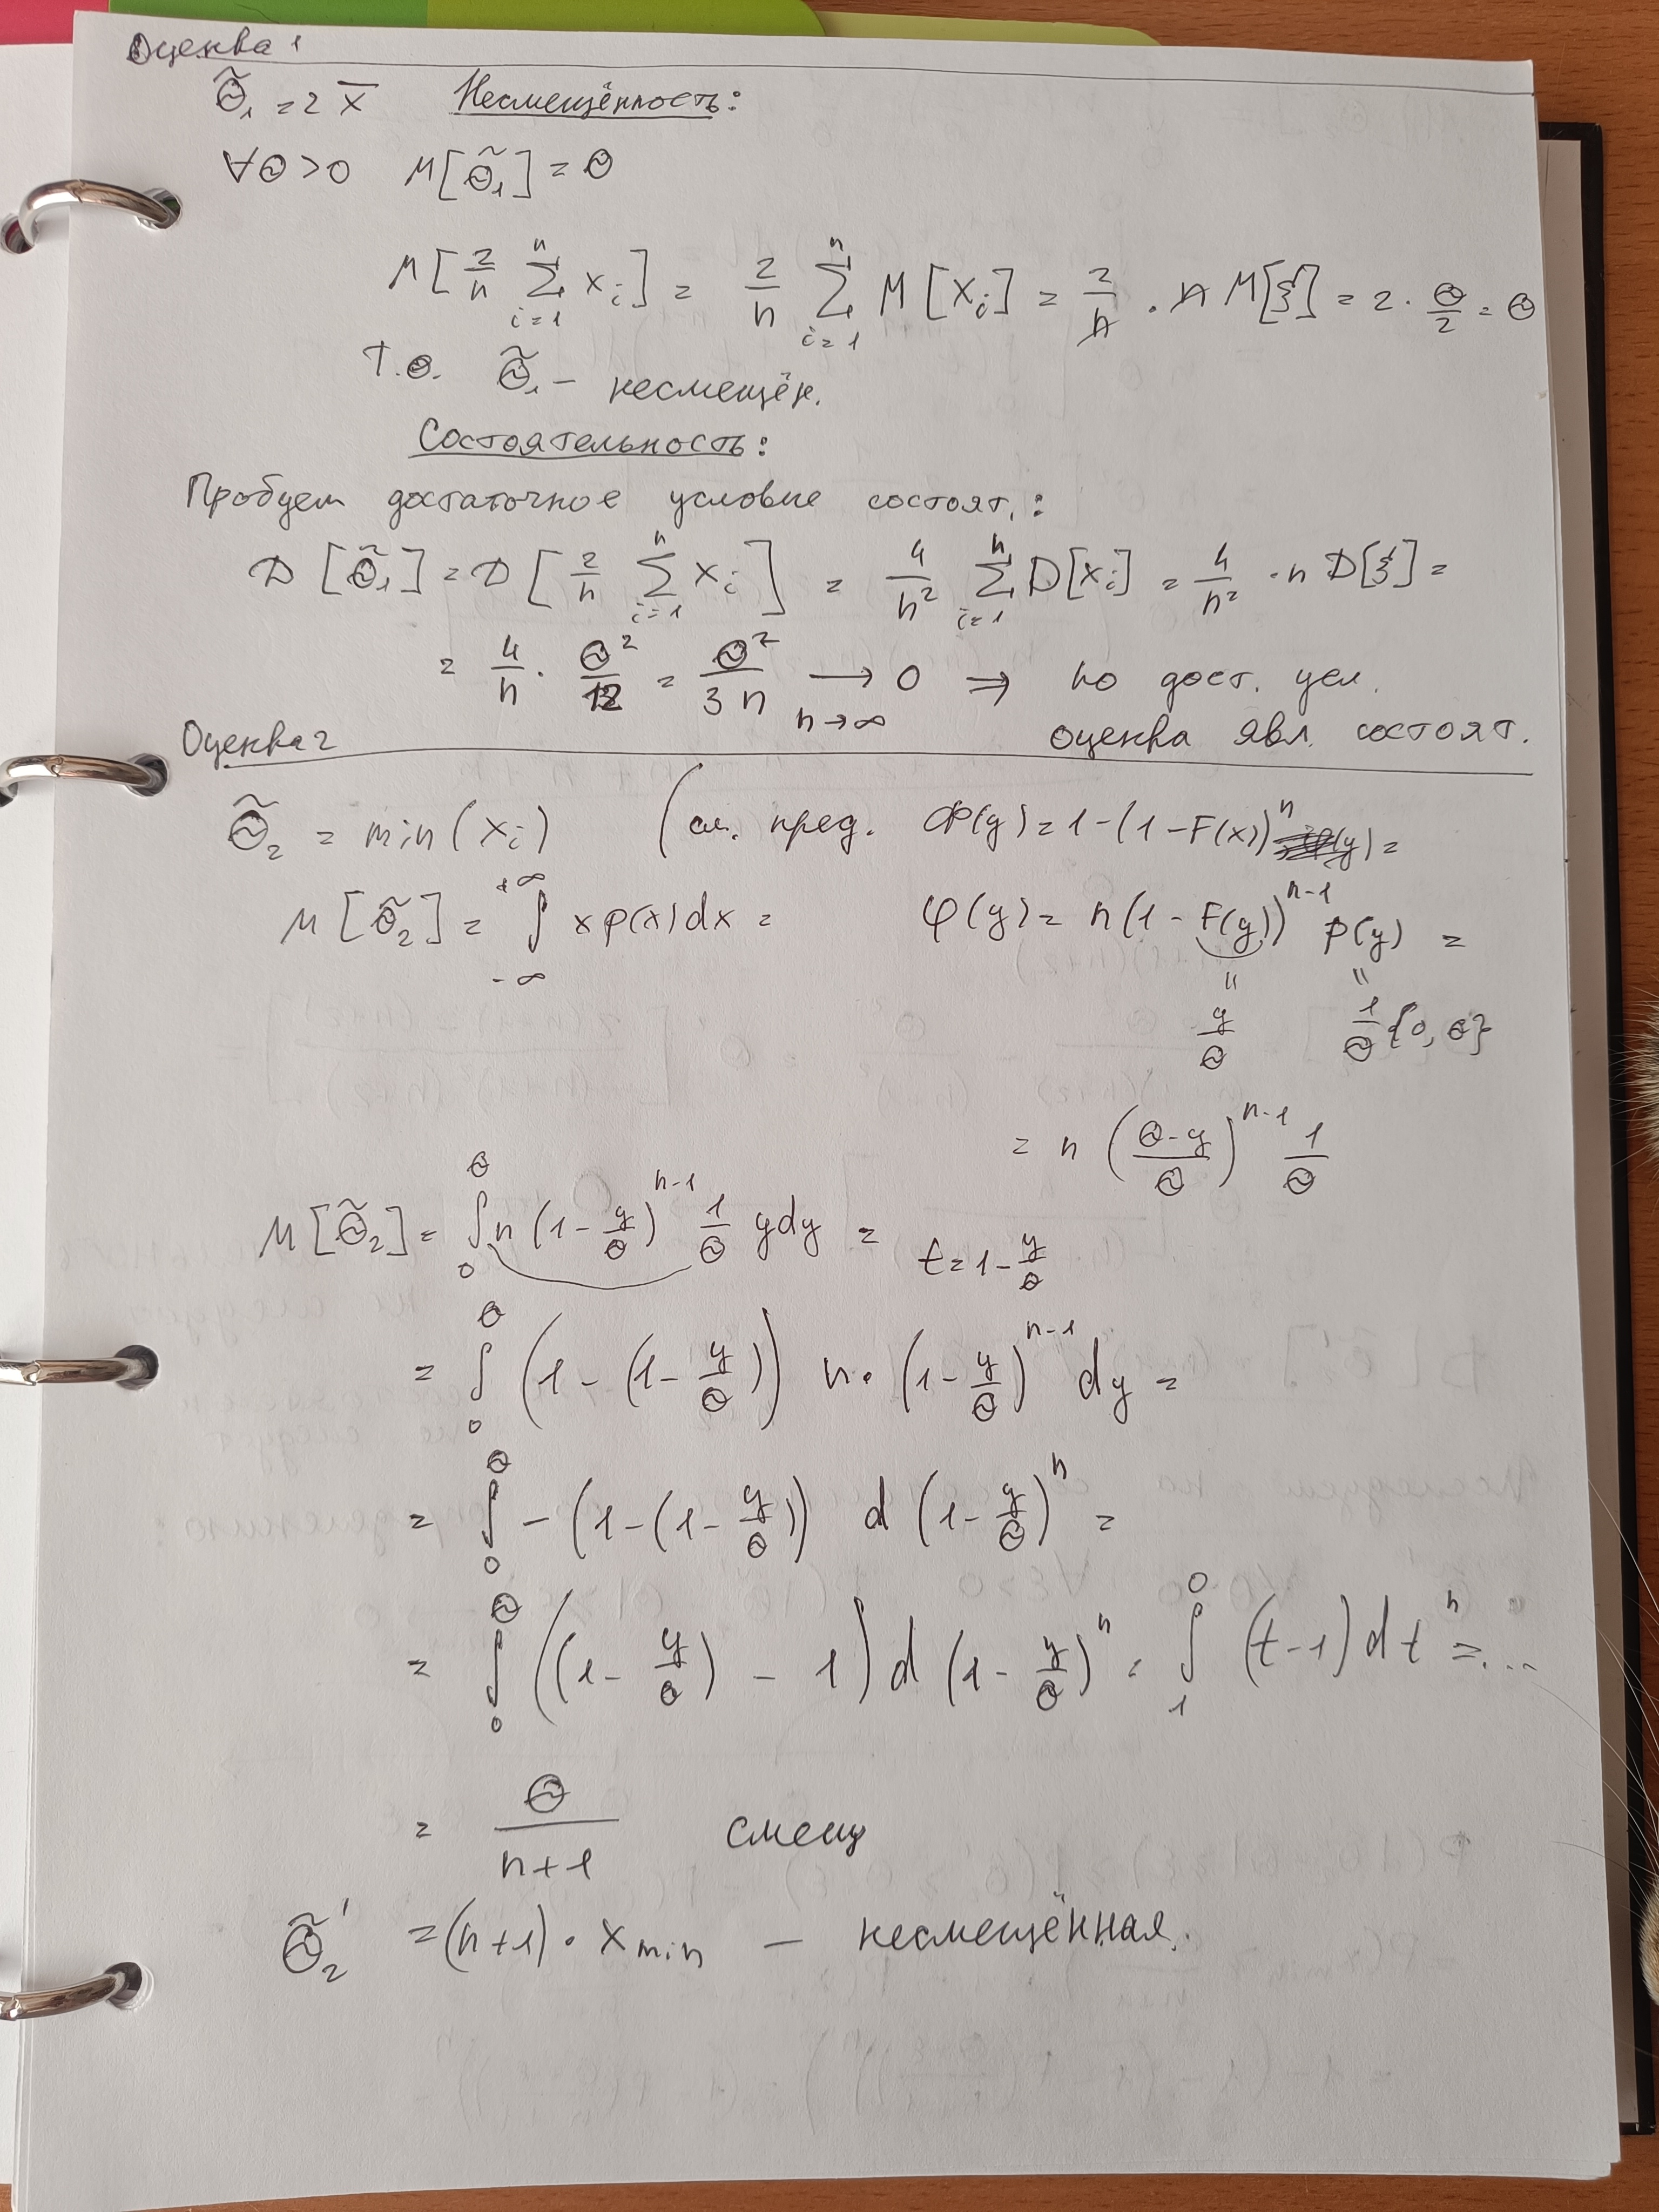 Оценква 1
Θ̃₁ = 2 x̄ Несмещённость:
∀Θ>0 M[Θ̃₁] = Θ
M[2/n Σ_{i=1}^{n} x_i] = 2/n Σ_{i=1}^{n} M[x_i] = 2/n · n M[ξ] = 2 · Θ/2 = Θ
Т.о. Θ̃₁ – несмещён.
Состоятельность:
Пробуем достаточное условие состоят.:
D[Θ̃₁] = D[2/n Σ_{i=1}^{n} x_i] = 4/n² Σ_{i=1}^{n} D[x_i] = 4/n² · n D[ξ] =
= 4/n · Θ²/12 = Θ²/3n → 0 ⇒ по дост. усл.
n→∞
Оценква 2 оценква явл. состоят.
Θ̃₂ = min(x_i) (см. пред. Φ(y) = 1-(1-F(x))ⁿ =
M[Θ̃₂] = ∫_{-∞}^{+∞} x p(x) dx = φ(y) = n(1-F(y))^{n-1} p(y) =
" "
y/Θ 1/Θ {0, Θ}
= n (Θ-y/Θ)^{n-1} 1/Θ
M[Θ̃₂] = ∫_0^Θ n (1-y/Θ)^{n-1} 1/Θ y dy = t = 1-y/Θ
= ∫_0^Θ (1-(1-y/Θ)) n · (1-y/Θ)^{n-1} dy =
= ∫_0^Θ -(1-(1-y/Θ)) d(1-y/Θ)ⁿ =
= ∫_0^Θ ((1-y/Θ) - 1) d(1-y/Θ)ⁿ = ∫_1^0 (t-1) dtⁿ = ...
= Θ/n+1 смещ
Θ̃₂' = (n+1) · x_min – несмещённая.